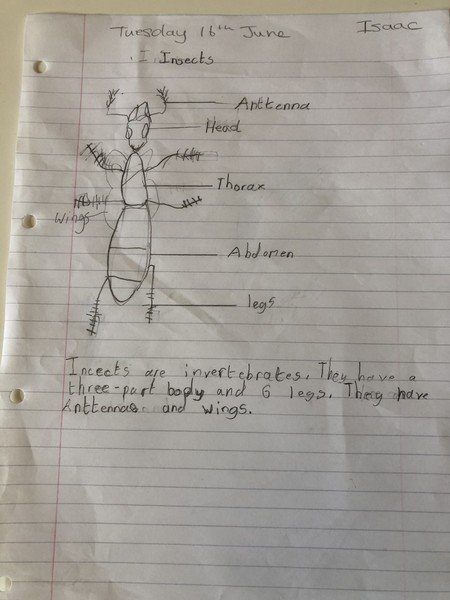 Isaac
Tuesday 16th June
I. Insects
Anttenna
Head
Thorax
Wings
Abdomen
legs
Incects are invertebrates. They have a
three-part body and 6 legs. They have
Anttennas and wings.